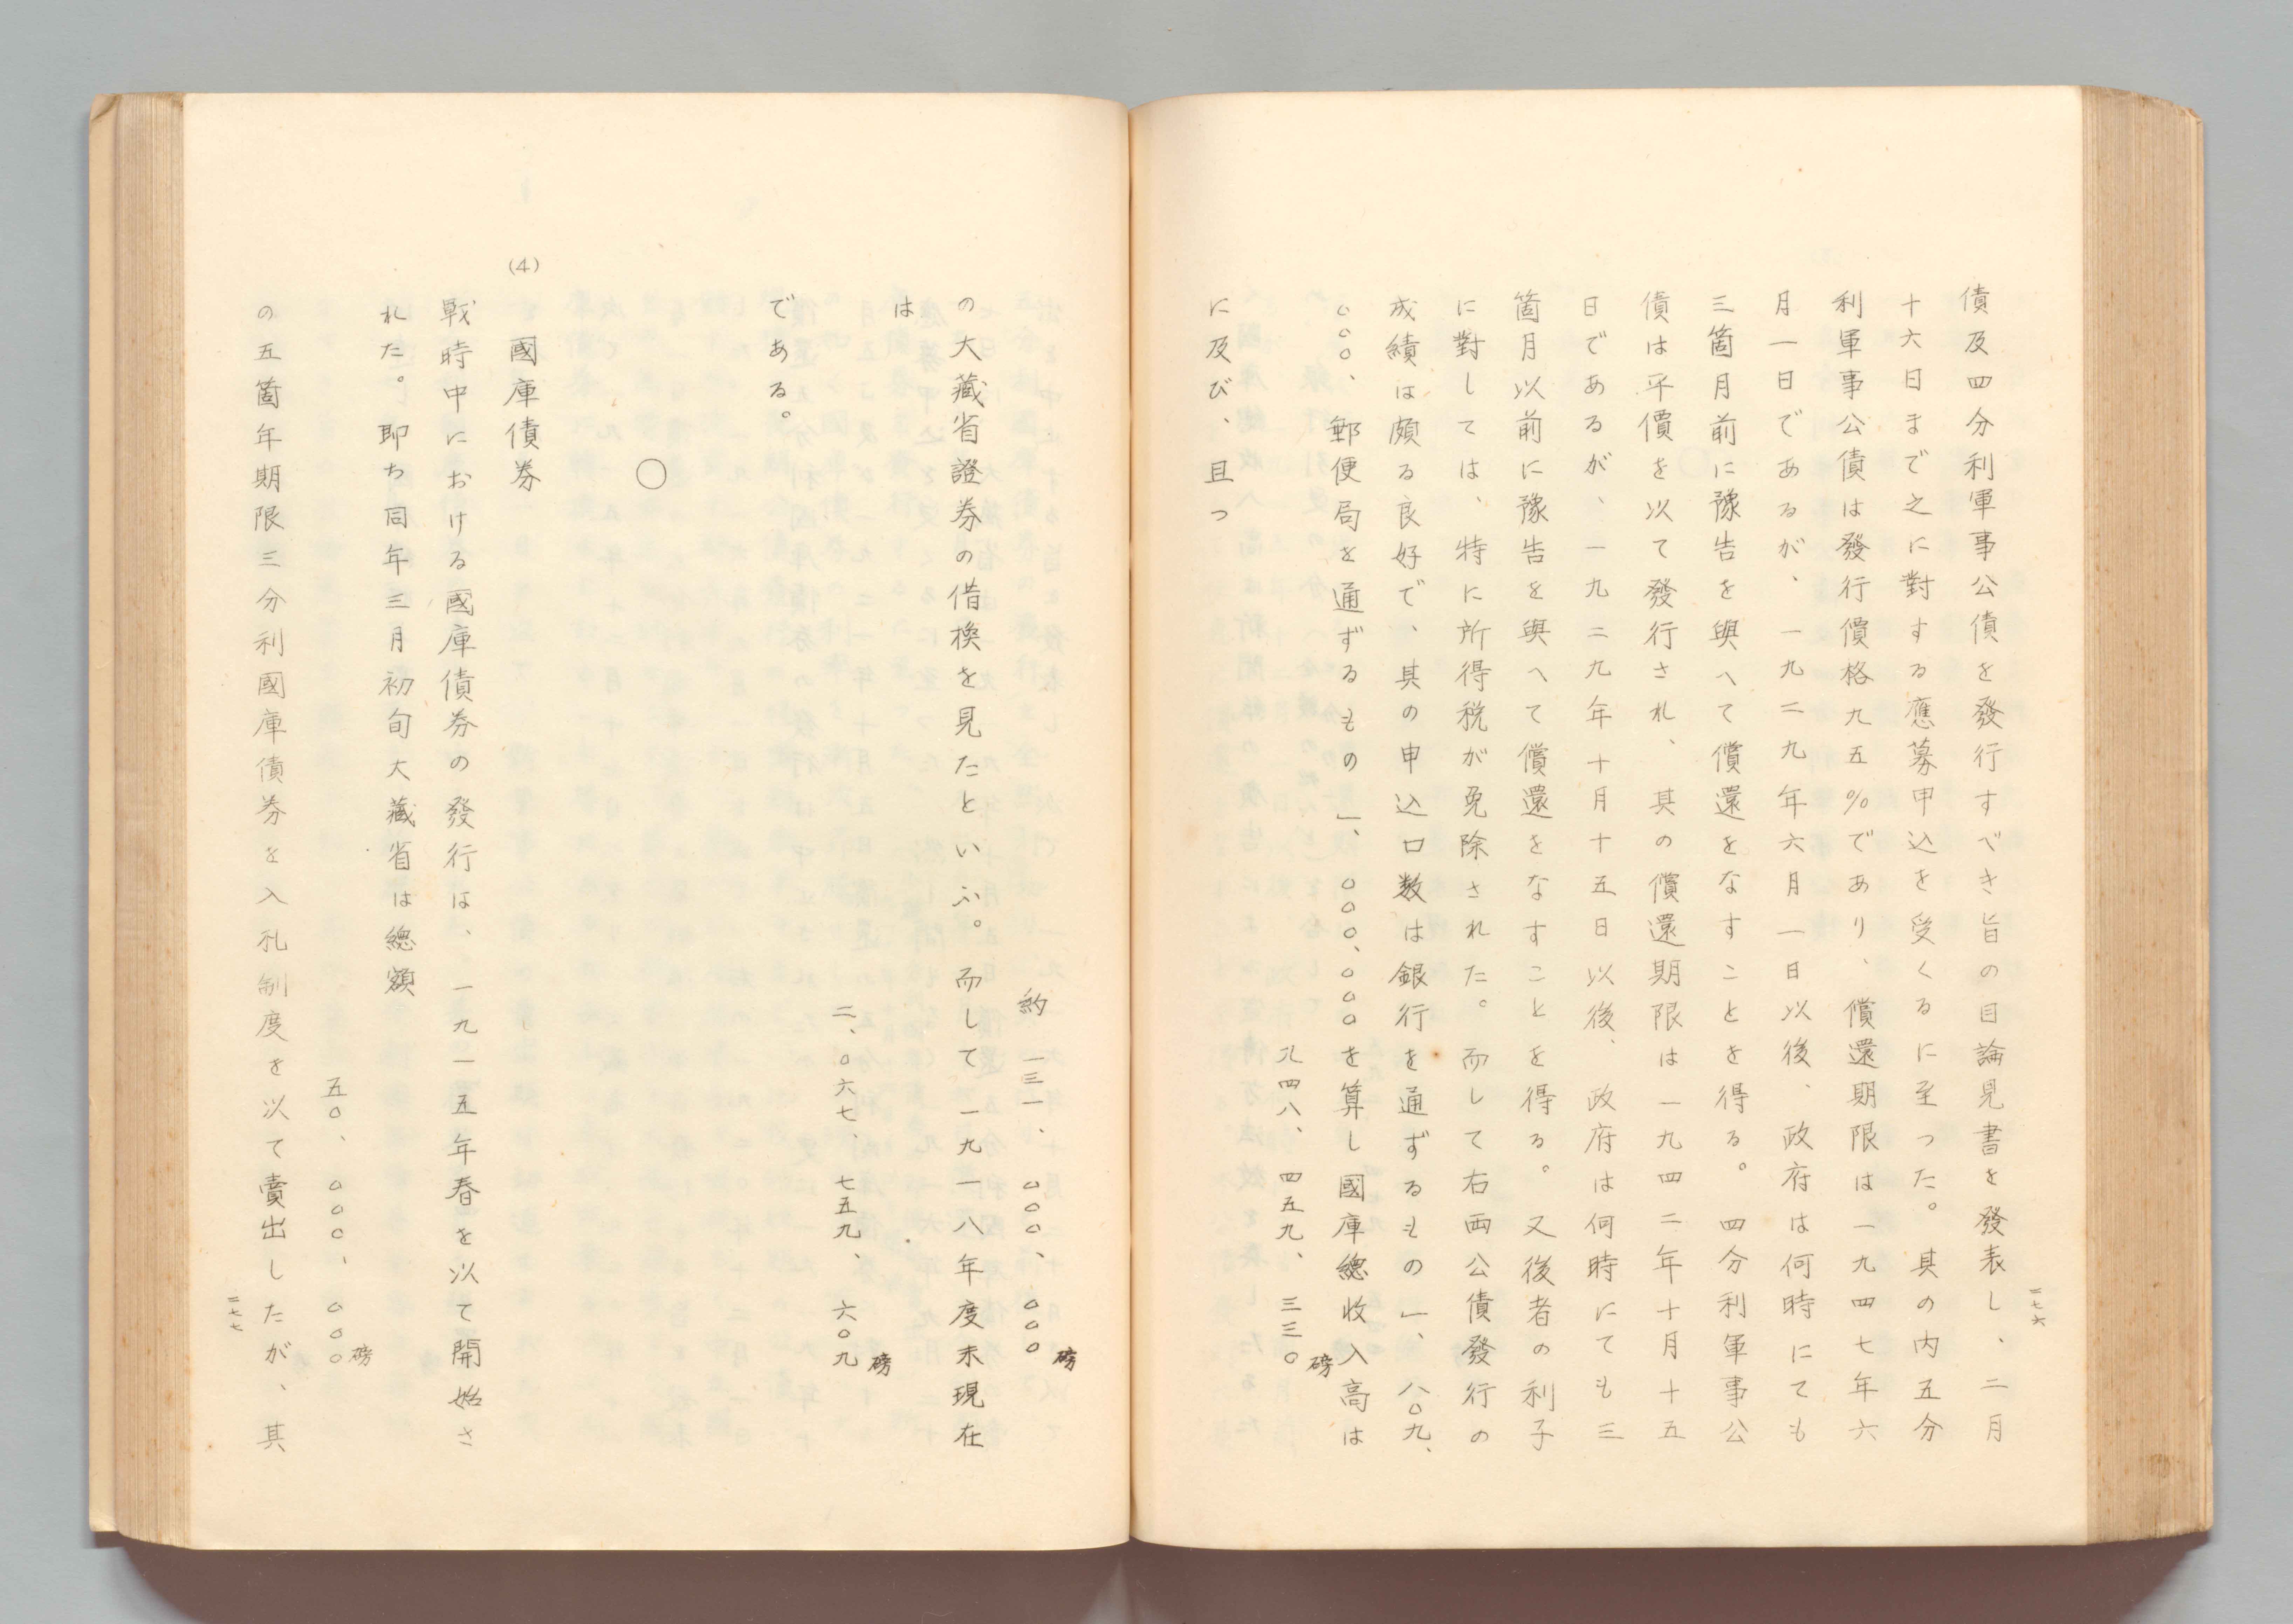 債及四分利軍事公債を發行すべき旨の目論見書を發表し、二月
十六日まで之に對する應募申込を受くるに至つた。其の内五分
利軍事公債は發行價格九五%であり、償還期限は一九四七年六
月一日であるが、一九二九年六月一日以後、政府は何時にても
三箇月前に豫告を與へて償還をなすことを得る。四分利軍事公
債は平價を以て發行され、其の償還期限は一九四二年十月十五
日であるが、一九二九年十月十五日以後、政府は何時にても三
箇月以前に豫告を與へて償還をなすことを得る。又後者の利子
に對しては、特に所得税が免除された。而して右両公債發行の
成績は頗る良好で、其の申込口数は銀行を通ずるもの一、八〇九、
〇〇〇、郵便局を通ずるもの一、〇〇〇、〇〇〇を算し國庫總收入高は
九四八、四五九、三三〇磅
に及び、且つ
二七六
約一三一、〇〇〇、〇〇〇磅
の大藏省證券の借換を見たといふ。而して一九一八年度末現在
は
二、〇六七、七五九、六〇九磅
である。
〇
(4) 國庫債券
戰時中における國庫債券の發行は、一九一五年春を以て開始さ
れた。即ち同年三月初旬大藏省は總額
五〇、〇〇〇、〇〇〇磅
の五箇年期限三分利國庫債券を入札制度を以て賣出したが、其
二七七